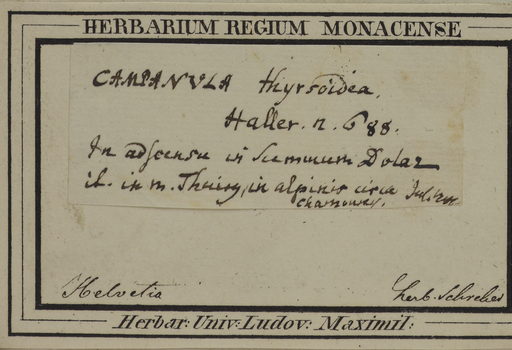 HERBARIUM REGIUM MONACENSE
CAMPANULA thyrsoidea.
Haller. n. 688.
In adscensu in summum Dolaz
it. in m. Thuiry, in alpinis circa
chamouny.
Helvetia
herb. Schreber
Herbar: Univ: Ludov: Maximil: